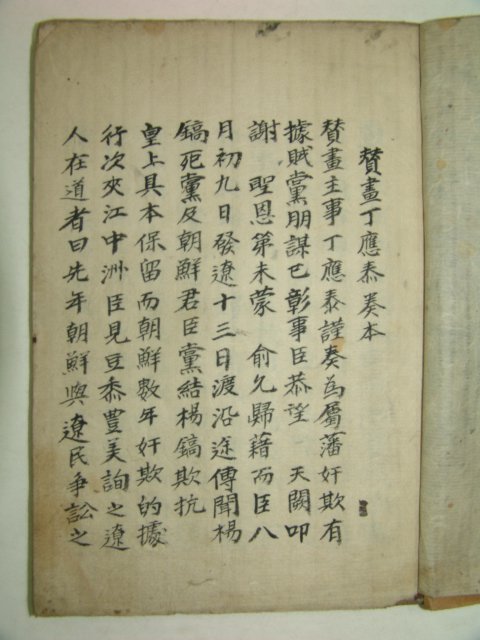 贊畫丁應泰奏本
贊畫主事丁應泰謹奏爲屬藩奸欺有
據賊黨朋謀已彰事臣恭望 天闕叩
謝 聖恩第未蒙 俞允歸藉而臣八
月初九日發遼十三日渡沿途傳聞楊
鎬死黨及朝鮮君臣黨結楊鎬欺抗
皇上具本保留而朝鮮數年奸欺的據
行次夾江中洲臣見豆黍豊美詢之遼
人在道者曰先年朝鮮與遼民爭訟之